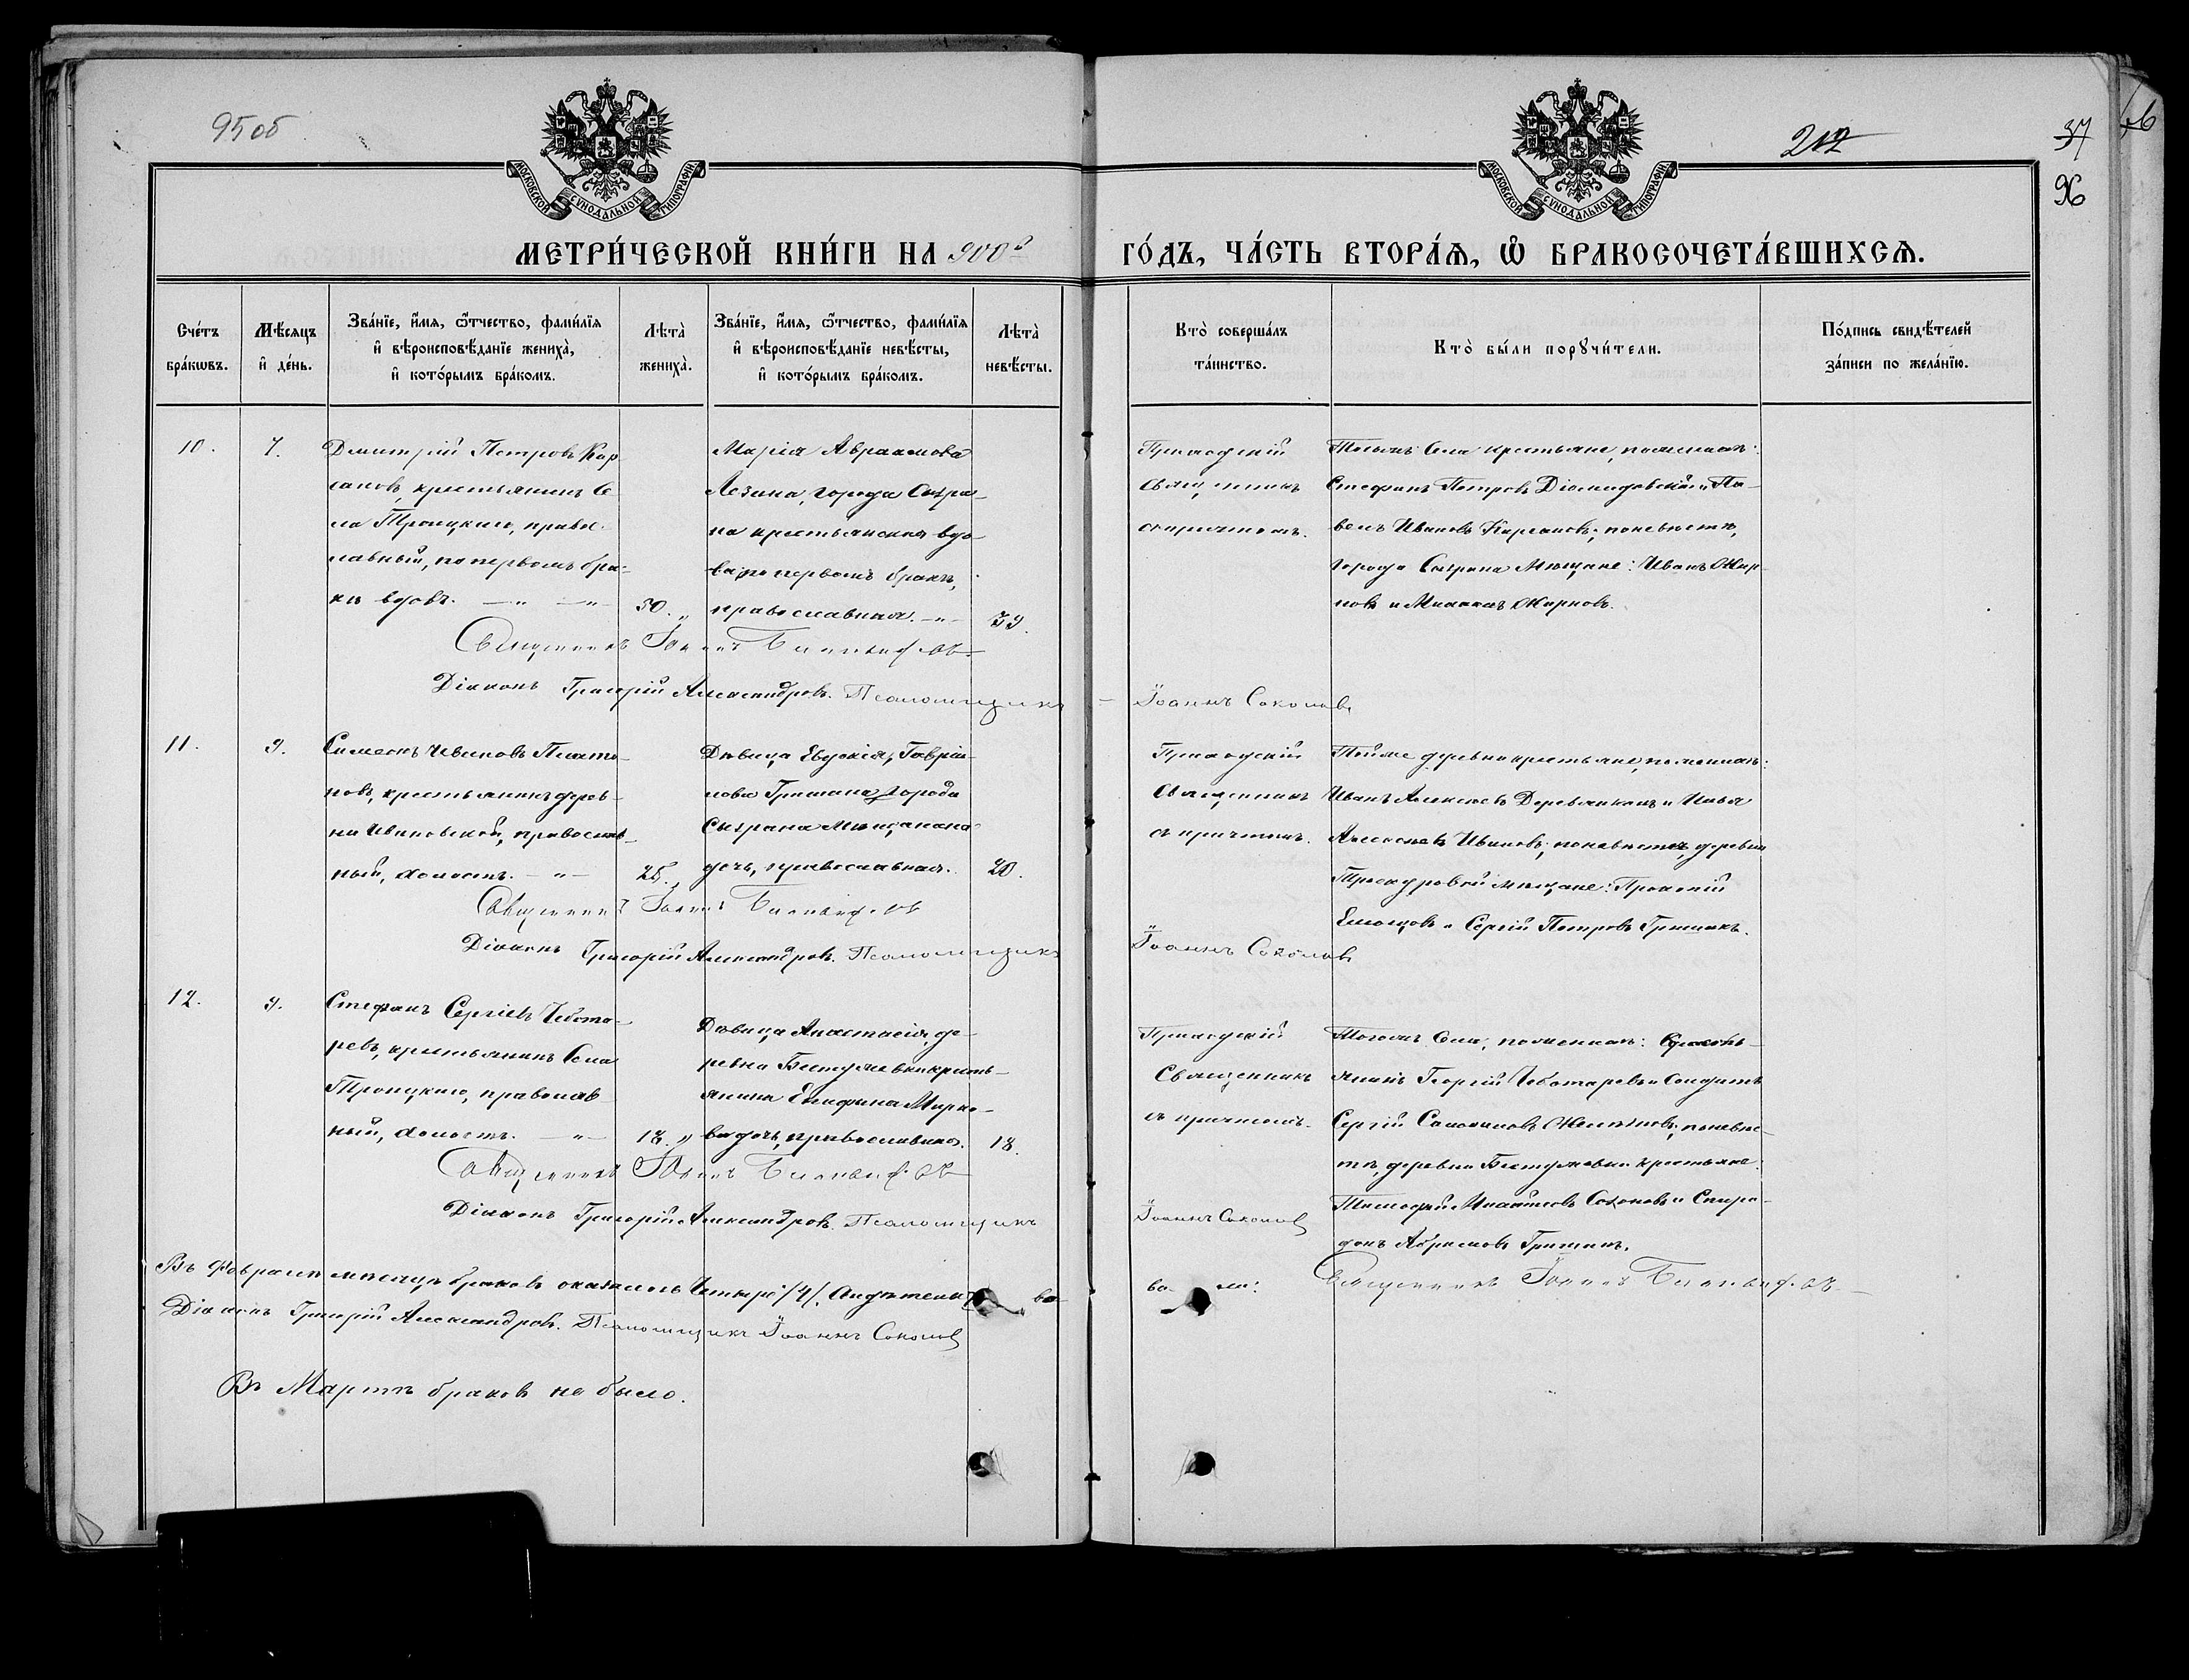 95 об
212
37
96
МОСКОВСКОЙ СѴНОДАЛЬНОЙ ТИПОГРАФІИ
МОСКОВСКОЙ СѴНОДАЛЬНОЙ ТИПОГРАФІИ
МЕТРИ́ЧЕСКОЙ КНИ́ГИ НА 900й ГО́ДЪ, ЧА́СТЬ ВТОРА́Я, Ѽ БРАКОСОЧЕТА́ВШИХСЯ.
Сче́тъ бра́кѡвъ.
Мѣ́сяцъ и҆ де́нь.
Зва́нїе, и҆́мя, ѻ҆́тчество, фами́лїя и҆ вѣроисповѣ́данїе жениха̀, и҆ кото́рымъ бра́комъ.
Лѣта̀ жениха̀.
Зва́нїе, и҆́мя, ѻ҆́тчество, фами́лїя и҆ вѣроисповѣ́данїе невѣ́сты, и҆ кото́рымъ бра́комъ.
Лѣта̀ невѣ́сты.
Кто̀ соверша́лъ та́инство.
Кто̀ бы́ли порꙋчи́тели.
По́дпись свидѣ́телей за́писи по жела́нїю.
10.
7.
Димитрій Петровъ Кар
сановъ, крестьянинъ Се
ла Троицкаго, правос-
лавный, по первомъ бра-
кѣ вдовъ.
50.
Марія Авраамова
Лезина, города Сызра-
на крестьянская вдо-
ва по первомъ бракѣ,
православная.
39.
Приходскій
Священникъ
съ причтомъ.
Тогожъ Села крестьяне, по женихѣ:
Стефанъ Петровъ Діомидовскій и Па-
велъ Ивановъ Карсановъ; по невѣстѣ,
города Сызрана Мѣщане: Иванъ Жир-
новъ и Михаилъ Жирновъ.
Священникъ Іоаннъ
Діаконъ Григорій Александровъ. Псаломщикъ Іоаннъ Соколовъ
11.
9.
Симеонъ Ивановъ Плато-
новъ, крестьянинъ дерев-
ни Ивановской, православ-
ный, холостъ.
25.
Дѣвица Евдокія, Гаврии-
лова Гришина города
Сызрана мѣщанина
дочь, православная.
20.
Приходскій
Священникъ
съ причтомъ.
Тойже деревни крестьяне, по женихѣ:
Иванъ Алексѣевъ Деревянкинъ и Илья
Алексѣевъ Ивановъ; по невѣстѣ, деревни
мѣщане:
и Сергій Петровъ Гришинъ.
Священникъ Іоаннъ
Діаконъ Григорій Александровъ. Псаломщикъ Іоаннъ Соколовъ
12.
9.
Стефанъ Сергіевъ Чебота-
ревъ, крестьянинъ Села
Троицкаго, православ
ный, холостъ.
18.
Дѣвица Анастасія, де-
ревни Бестужевки кресть-
янина Епифана Марко-
ва дочь, православная.
18.
Приходскій
Священникъ
съ причтомъ.
Тогожъ Села, по женихѣ: Кресть-
янинъ Георгій Чеботаревъ и Солдатъ
Сергій по невѣс-
тѣ, деревни Бестужевки крестьяне:
Тимофей и Спири-
донъ Абрамовъ Гришинъ.
Священникъ Іоаннъ
Діаконъ Григорій Александровъ. Псаломщикъ Іоаннъ Соколовъ
Въ Февралѣ мѣсяцѣ браковъ оказалось Четыре /4/.
Священникъ Іоаннъ
Діаконъ Григорій Александровъ. Псаломщикъ Іоаннъ Соколовъ
Въ Мартѣ браковъ не было.